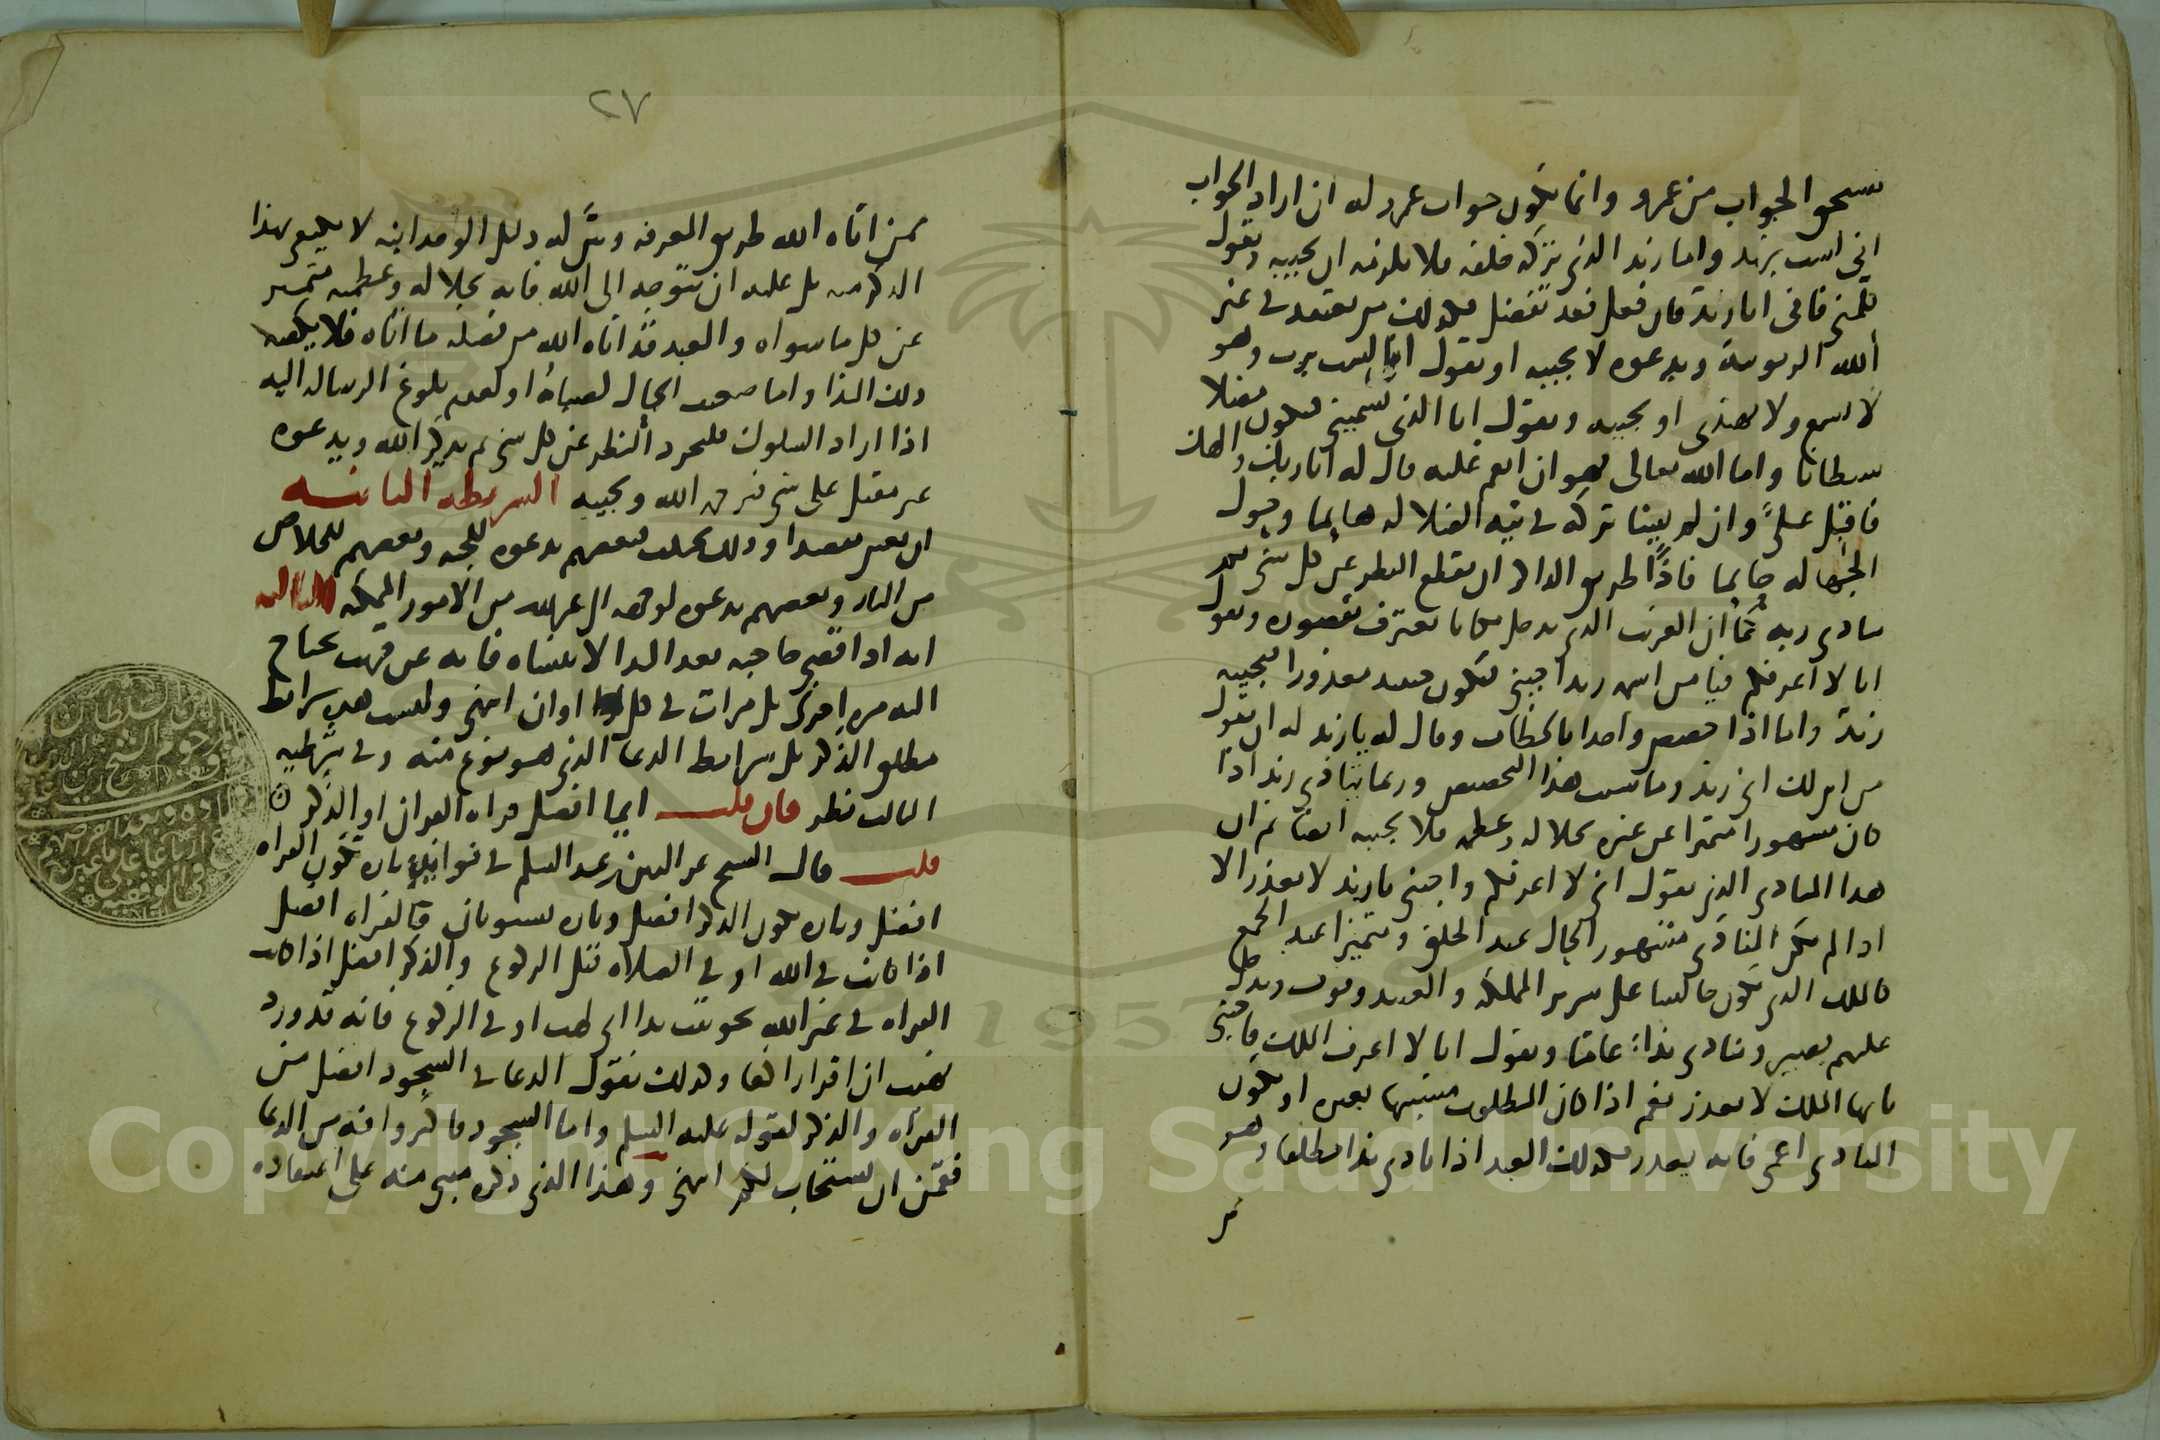 يستحق الجواب من عمرو وانما يكون جواب عمرو له ان اراد الجواب
اني لست بزيد واما زيد الذي تركه خلفه فلا يلزمه ان يجيبه ويقول
كلمني فاني انا زيد فان فعل فقد تفضل فكذلك من يعتقد في غير
الله الربوبية ويدعوه لا يجيبه او يقول انا لست برب وهو
لا يسمع ولا يهذي او يجيبه ويقول انا الذي تسميني فيكون مضلا
شيطانا واما الله تعالى فهو ان انعم عليه قال له انا ربك والهك
فاقبل علي وان لم يشا تركه في تيه الضلاله هايما وحول
الجهاله حايما فاذا طريق الذاكر ان يقطع النظر عن كل شي ثم
ينادي ربه كما ان الغريب الذي يدخل مكانا يعترف بقصوره ويقول
انا لا اعرفكم فيا من اسمه زيد اجبني فيكون حينيذ معذورا فيجيبه
زيد واما اذا خصص واحدا بالخطاب وقال له يا زيد له ان يقول
من اين لك اني زيد وما سبب هذا التخصيص وربما يتاذى زيد اذا
كان مشهورا متميزا عن غيره بجلاله وعظمه فلا يجيبه ايضا ثم ان
هذا المنادي الذي يقول اني لا اعرفكم واجبني يا زيد لا يعذر الا
اذا لم يكن المنادى مشهور الحال عند الخلق ومتميزا عند الجمع
كالملك الذي يكون جالسا على سرير المملكه والعبيد وقوف ويدخل
عليهم بصير وينادي نداء عاما ويقول انا لا اعرف الملك فاجبني
يا ايها الملك لا يعذر نعم اذا كان المطلوب مشتبها بغيره او يكون
المنادي اعمى فانه يعذر فكذلك العبد اذا نادى ندا مطلقا وهو
٢٧
ممن اتاه الله طريق المعرفه ويسر له دليل الوحدانيه لا يليق هذا
الذكر منه بل عليه ان يتوجه الى الله فانه بجلاله وعظمته متميز
عن كل ما سواه والعبد قد اتاه الله من فضله ما اتاه فلا يكفيه
ذلك الندا واما ضعيف الحال لصباه او لعدم بلوغ الرساله اليه
اذا اراد السلوك فليجرد النظر عن كل شي ثم يذكر الله ويدعوه
غير مقبل على شي فيرحمه الله ويجيبه الشريطه الثانيه
ان يعين مقصدا وذلك يختلف فبعضهم يدعوه للجنه وبعضهم للخلاص
من النار وبعضهم يدعوه لوجهه الى غير ذلك من الامور الممكنه الثالثه
انه اذا قضى حاجته بعد الندا لا ينساه فانه عن قريب يحتاج
اليه مره اخرى بل مرات في كل اوان انتهى وليست هي شرايط
مطلق الذكر بل شرايط الدعا الذي هو نوع منه وفي شرطيه
الثالث نظر فان قلت ايما افضل قراه القران او الذكر
قلت قال الشيخ عز الدين بن عبد السلم في فتاويه تاره تكون القراه
افضل وتاره يكون الذكر افضل وتاره يستويان فالقراه افضل
اذا كانت في الله او في الصلاه قبل الركوع والذكر افضل اذا كانت
القراه في غير الله نحو تبت يدا ابي لهب او في الركوع فانه قد ورد
نهيت ان اقرا راكعا وكذلك نقول الدعا في السجود افضل من
القراه والذكر لقوله عليه السلم واما السجود فاكثروا فيه من الدعا
فقمن ان يستجاب لكم انتهى وهذا الذي ذكره مبني منه على اعتقاده
Copyright © King Saud University
1957